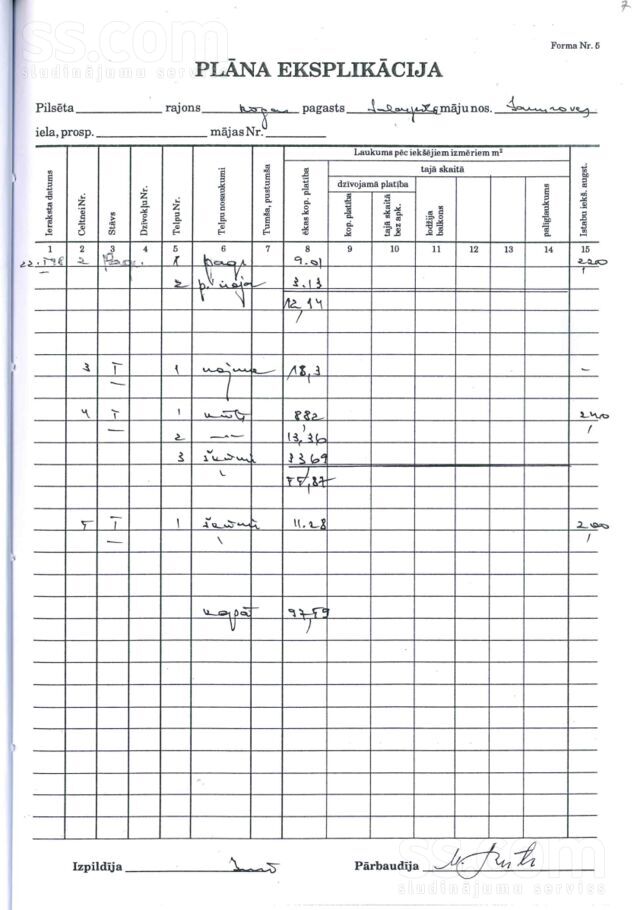 7
ss.com
sludinājumu serviss
Forma Nr. 5
PLĀNA EKSPLIKĀCIJA
Pilsēta rajons pagasts māju nos.
iela, prosp. mājas Nr.
Ieraksta datums
Celtnei Nr.
Stāvs
Dzīvokļu Nr.
Telpu Nr.
Telpu nosaukumi
Tumša, pustumša
Laukums pēc iekšējiem izmēriem m²
ēkas kop. platība
tajā skaitā
dzīvojamā platība
kop. platība
tajā skaitā bez apk.
lodžija balkons
palīglaukums
Istabu iekš. augst.
1 2 3 4 5 6 7 8 9 10 11 12 13 14 15
2 1 9.01 220
2 3.13
12,14
3 I 1 18,3 -
4 I 1 882 240
2 —"— 13,36
3 šķūni 3369
55,87
5 I 1 šķūni 11.28 200
kopā 97,59
Izpildīja Pārbaudīja
ss.com
sludinājumu serviss